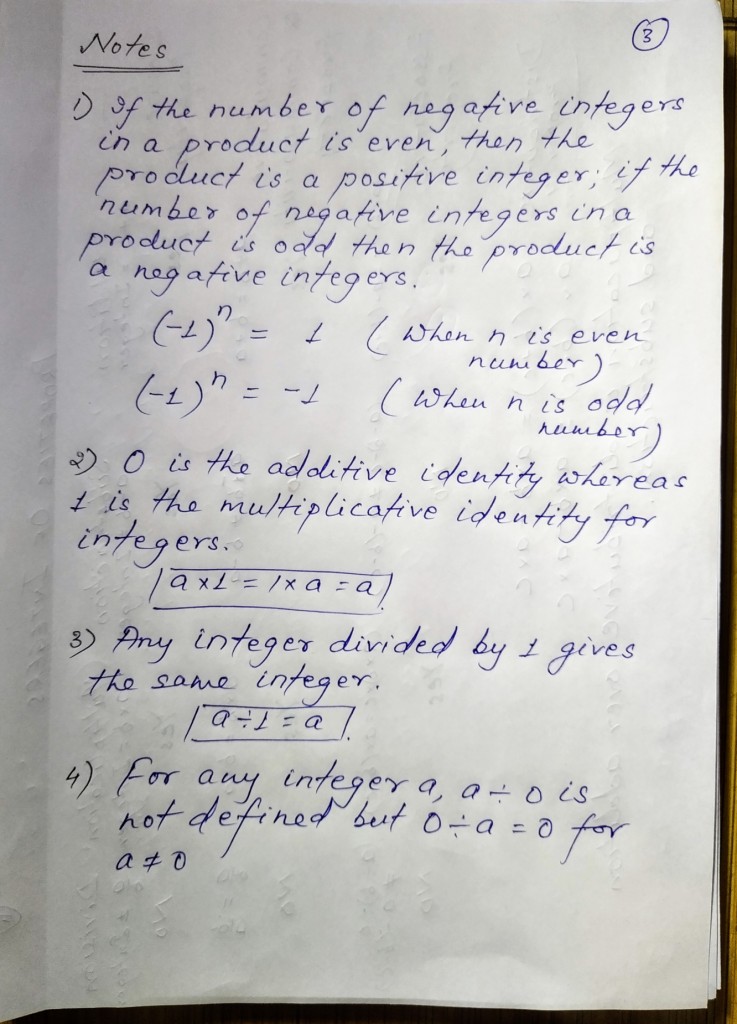 Notes
3
1) If the number of negative integers
in a product is even, then the
product is a positive integer; if the
number of negative integers in a
product is odd then the product is
a negative integers.
(-1)ⁿ = 1 (When n is even
number)
(-1)ⁿ = -1 (When n is odd
number)
2) 0 is the additive identity whereas
1 is the multiplicative identity for
integers.
a×1 = 1×a = a
3) Any integer divided by 1 gives
the same integer.
a÷1 = a
4) For any integer a, a÷0 is
not defined but 0÷a = 0 for
a≠0